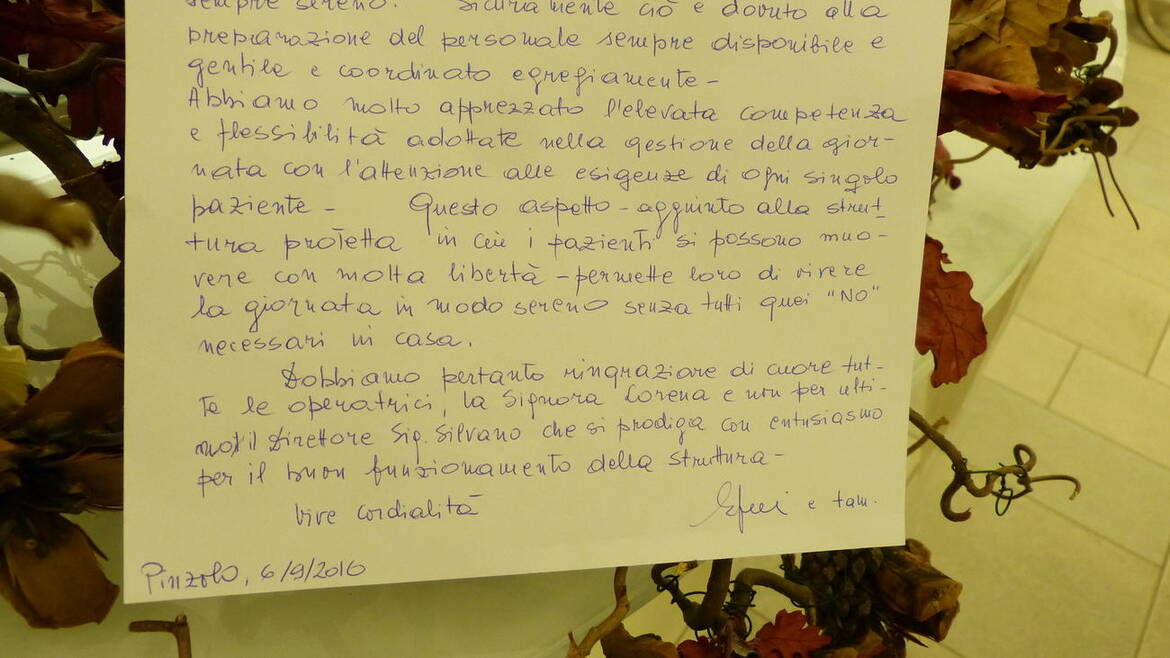 sempre sereno. Sicuramente ciò è dovuto alla
preparazione del personale sempre disponibile e
gentile e coordinato egregiamente -
Abbiamo molto apprezzato l'elevata competenza
e flessibilità adottate nella gestione della gior-
nata con l'attenzione alle esigenze di ogni singolo
paziente - Questo aspetto - aggiunto alla strut-
tura protetta in cui i pazienti si possono muo-
vere con molta libertà - permette loro di vivere
la giornata in modo sereno senza tutti quei "NO"
necessari in casa.
Dobbiamo pertanto ringraziare di cuore tut-
te le operatrici, la Signora Lorena e non per ulti-
mo il Direttore Sig. Silvano che si prodiga con entusiasmo
per il buon funzionamento della struttura -
Vive cordialità
e fam.
Pinzolo, 6/9/2016